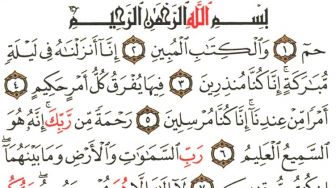 بِسْمِ اللَّهِ الرَّحْمَٰنِ الرَّحِيمِ
حمٓ ١ وَالْكِتَابِ الْمُبِينِ ٢ إِنَّا أَنْزَلْنَاهُ فِي لَيْلَةٍ
مُبَارَكَةٍ ۚ إِنَّا كُنَّا مُنْذِرِينَ ٣ فِيهَا يُفْرَقُ كُلُّ أَمْرٍ حَكِيمٍ ٤
أَمْرًا مِنْ عِنْدِنَا ۚ إِنَّا كُنَّا مُرْسِلِينَ ٥ رَحْمَةً مِنْ رَبِّكَ ۚ إِنَّهُ هُوَ
السَّمِيعُ الْعَلِيمُ ٦ رَبِّ السَّمَٰوَاتِ وَالْأَرْضِ وَمَا بَيْنَهُمَا ۖ